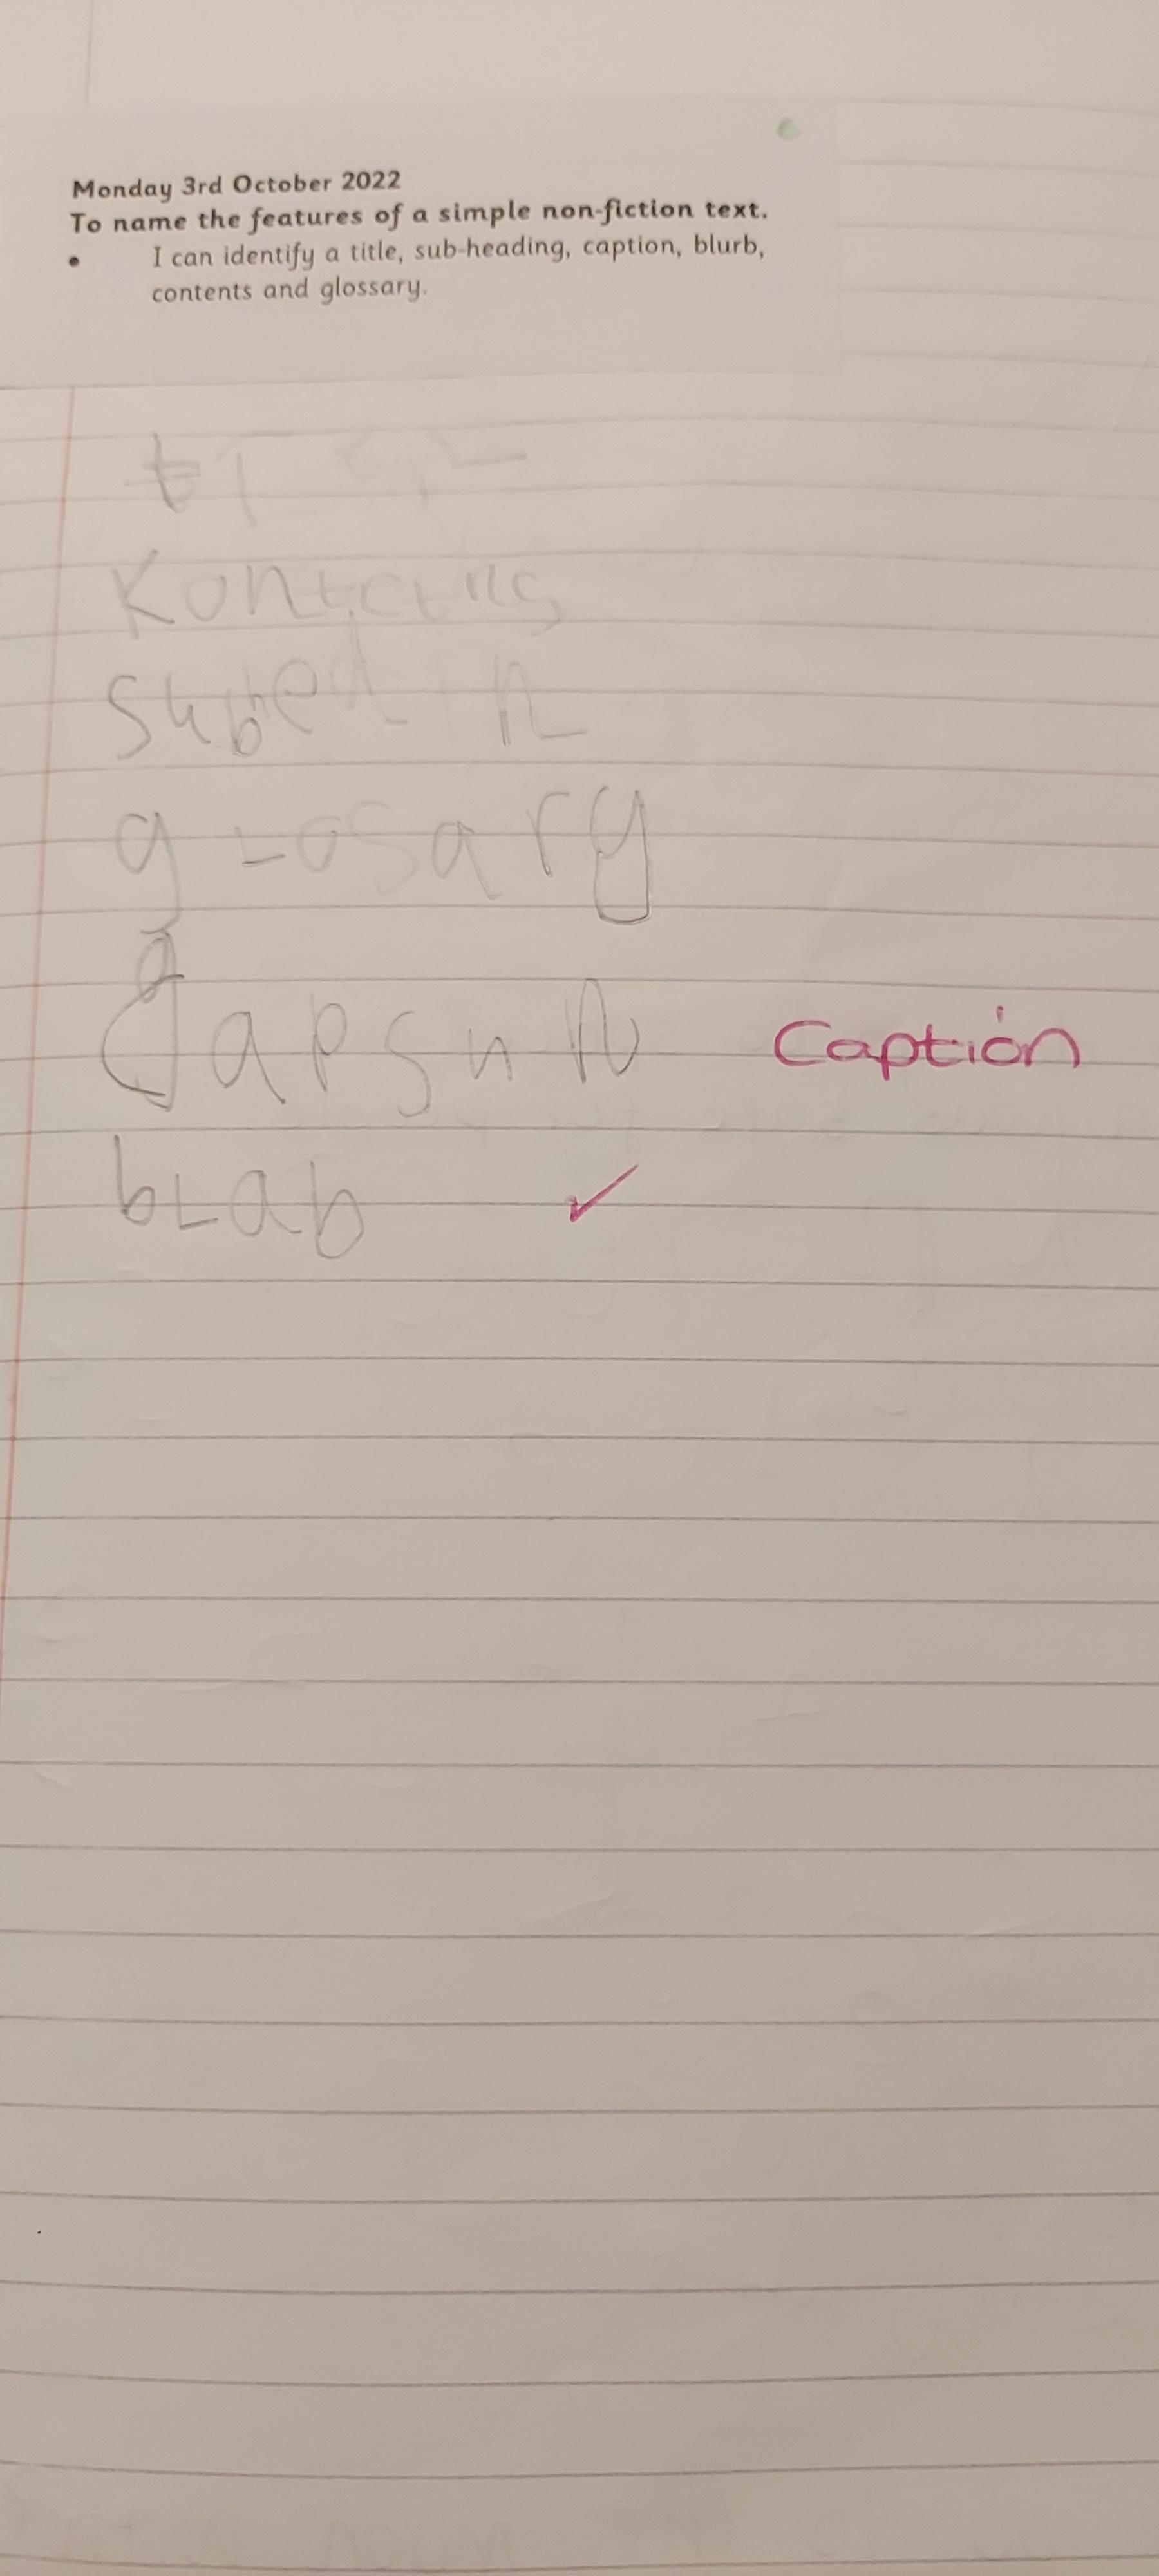 Monday 3rd October 2022
To name the features of a simple non-fiction text.
• I can identify a title, sub-heading, caption, blurb,
contents and glossary.
subed
glosary
capsun Caption
blab ✓